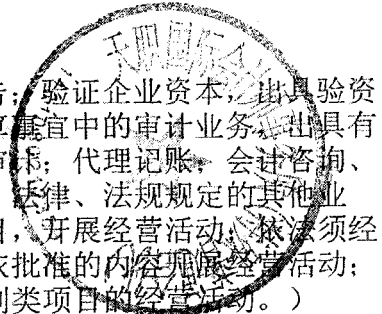 天职国际会
；验证企业资本，出具验资
事宜中的审计业务，出具有
；代理记账；会计咨询、
法律、法规规定的其他业
，开展经营活动；依法须经
批准的内容开展经营活动；
类项目的经营活动。）